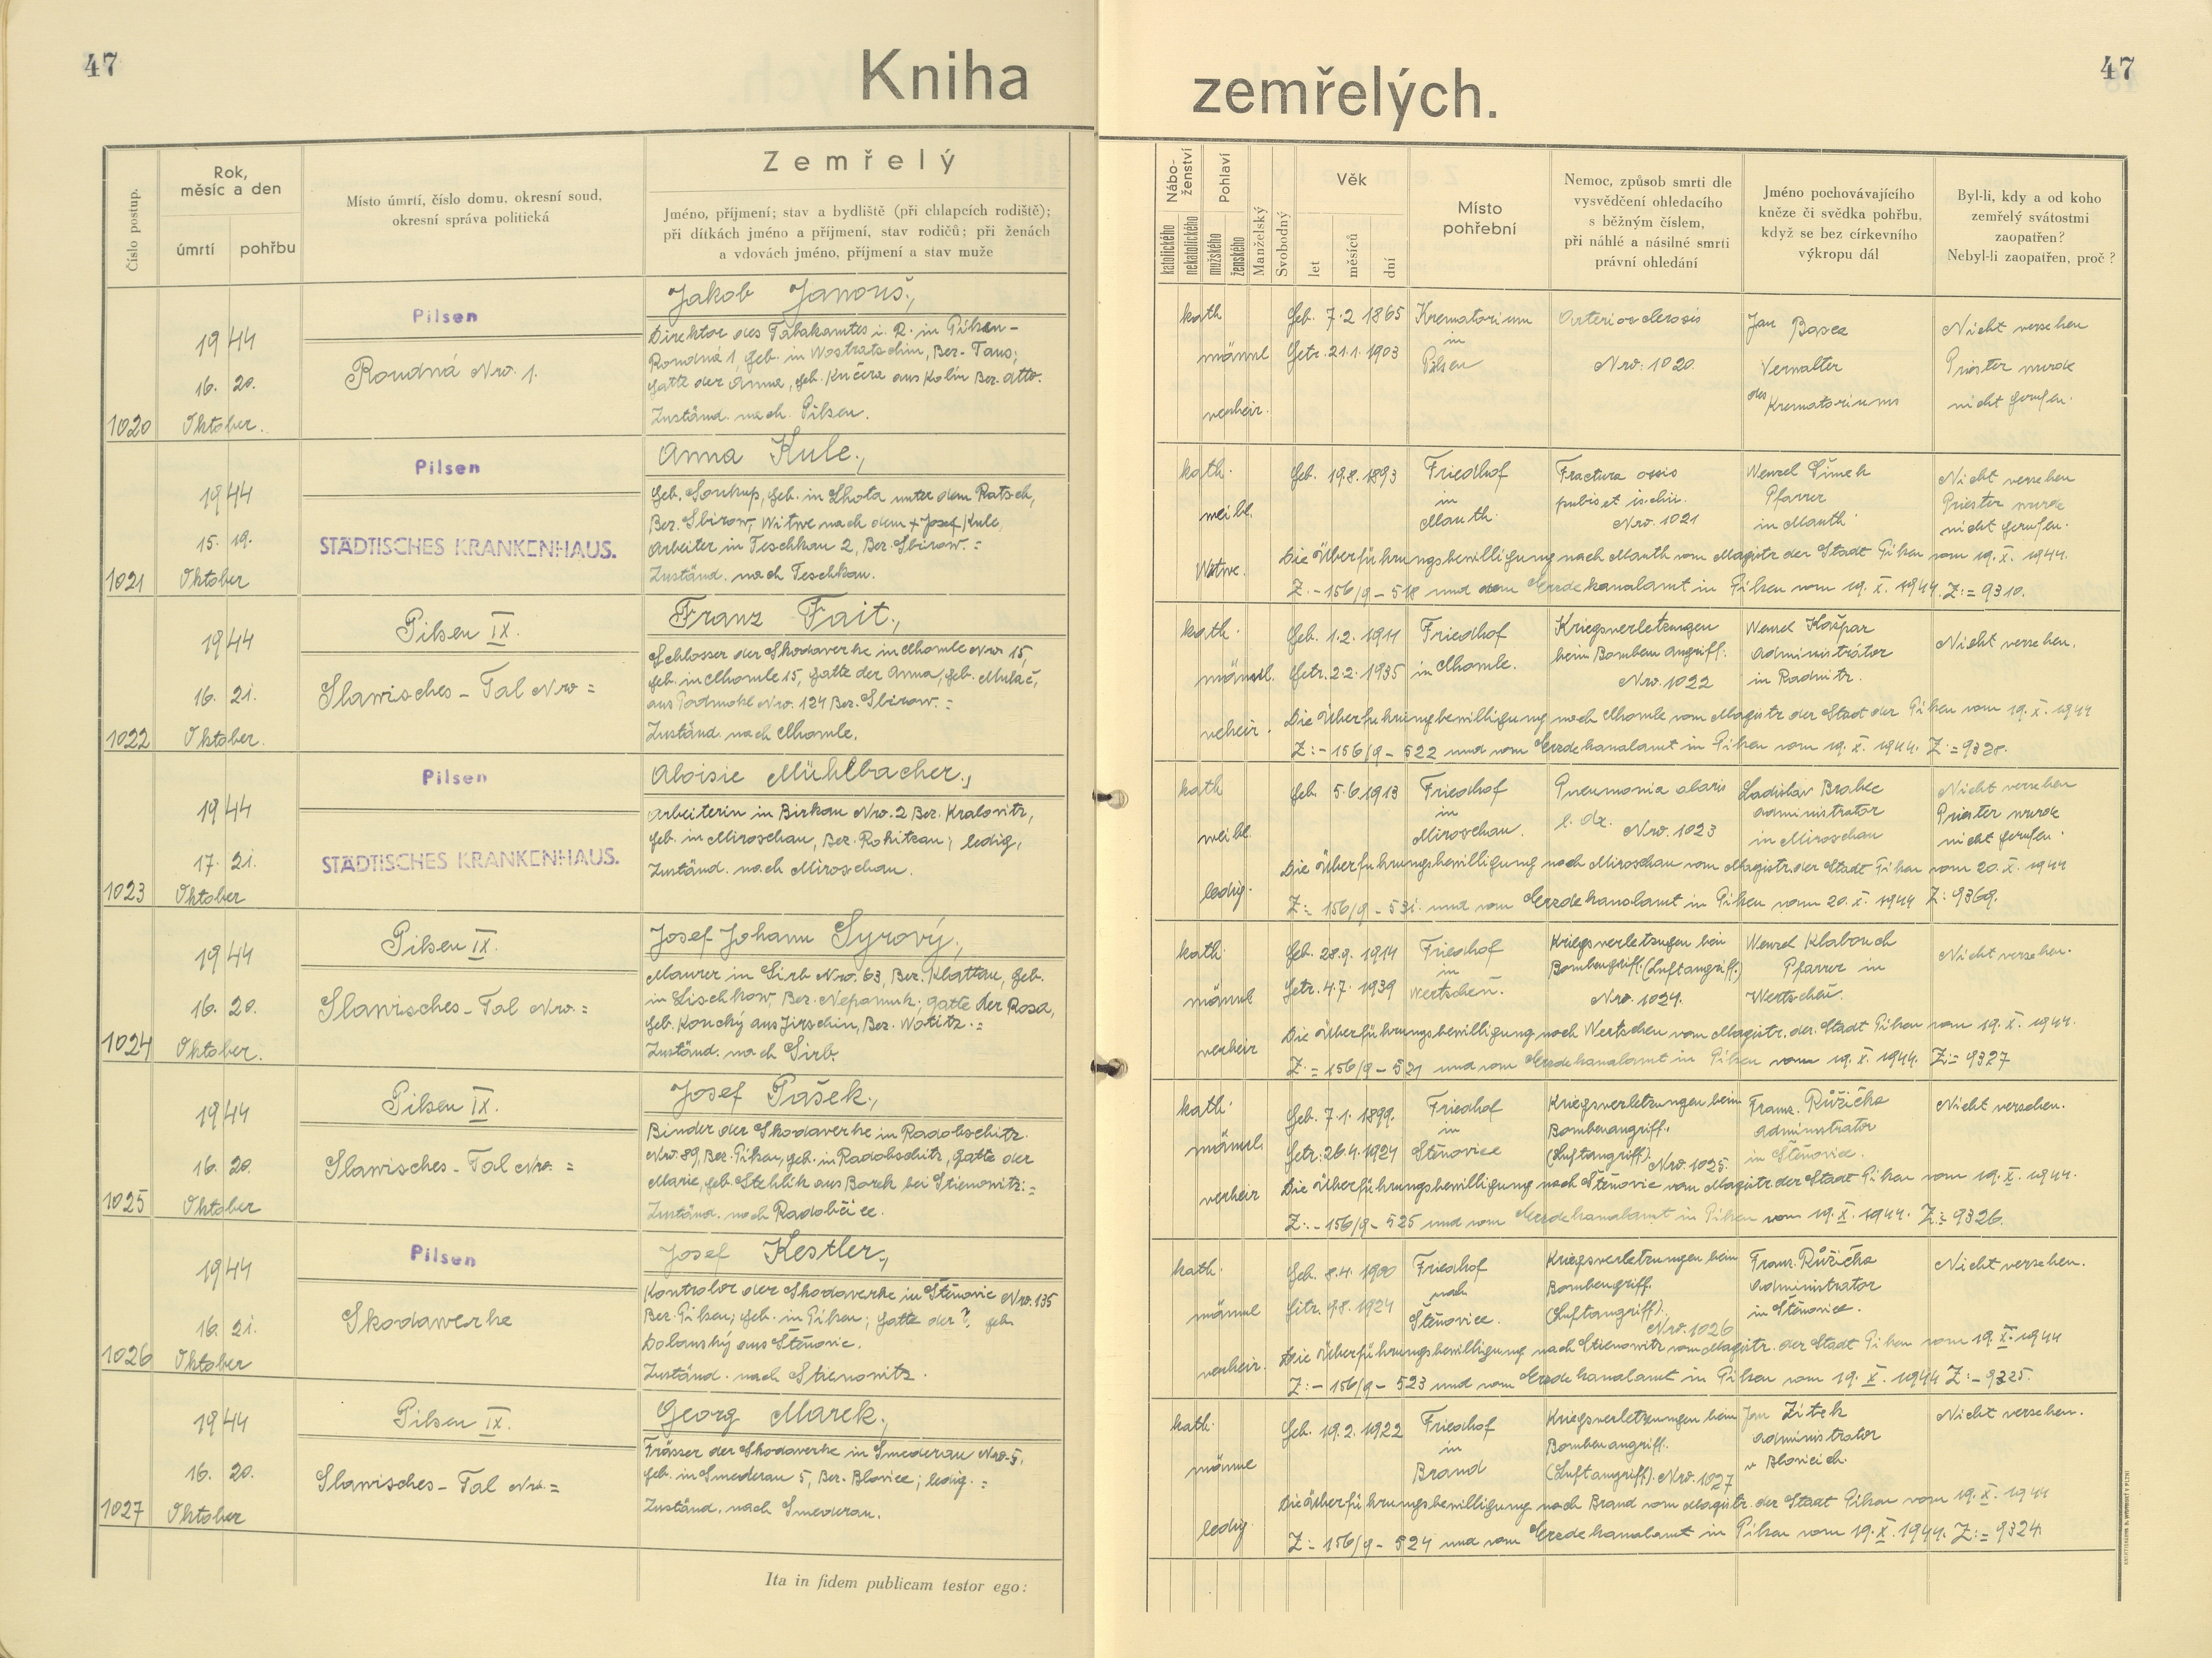 47
Kniha
zemřelých.
47
Číslo postup.
Rok,
měsíc a den
úmrtí
pohřbu
Místo úmrtí, číslo domu, okresní soud,
okresní správa politická
Zemřelý
Jméno, příjmení; stav a bydliště (při chlapcích rodiště);
při dítkách jméno a příjmení, stav rodičů; při ženách
a vdovách jméno, příjmení a stav muže
Nábo-
ženství
katolického
nekatolického
Pohlaví
mužského
ženského
Manželský
Svobodný
Věk
let
měsíců
dní
Místo
pohřební
Nemoc, způsob smrti dle
vysvědčení ohledacího
s běžným číslem,
při náhlé a násilné smrti
právní ohledání
Jméno pochovávajícího
kněze či svědka pohřbu,
když se bez církevního
výkropu dál
Byl-li, kdy a od koho
zemřelý svátostmi
zaopatřen?
Nebyl-li zaopatřen, proč?
1020
1944
16. 20.
Oktober.
Pilsen
Roudná Nro. 1.
Jakob Janouš,
Direktor des Tabakamtes i. R. in Pilsen-
Roudná 1, geb. in Wostratschin, Bez. Taus;
Gatte der Anna, geb. Kučera aus Kolín Bez. dtto.
Zuständ. nach Pilsen.
kath
männl
verheir.
Geb. 7.2 1865
Getr. 21.1. 1903
Krematorium
in
Pilsen
Arteriosclerosis
Nro: 1020.
Jan
Verwalter
des Krematoriums
Nicht versehen
Priester wurde
nicht gerufen.
1021
1944
15. 19.
Oktober
Pilsen
STÄDTISCHES KRANKENHAUS.
Anna Kule,
geb. Soukup, geb. in Lhota unter dem Ratsch,
Bez. Sbirow, Witwe nach dem + Josef Kule,
Arbeiter in Teschkau 2, Bez. Sbirow. =
Zuständ. nach Teschkau.
kath.
weibl.
Witwe.
Geb. 19.8. 1893
Friedhof
in
Mauth.
Fractura ossis
pubis et ischii.
Nro. 1021
Wenzel Šimek
Pfarrer
in Mauth
Nicht versehen
Priester wurde
nicht gerufen.
Die Überführungsbewilligung nach Mauth vom Magistr der Stadt Pilsen vom 19. X. 1944.
Z. - 156/9 - 518 und vom Erzdekanalamt in Pilsen vom 19. X. 1944. Z: = 9310.
1022
1944
16. 21.
Oktober.
Pilsen IX.
Slawisches-Tal Nro =
Franz Fait,
Schlosser der Skodawerke in Chomle Nro 15,
geb. in Chomle 15, Gatte der Anna, geb.
aus Podmokl Nro. 124 Bez. Sbirow. =
Zuständ. nach Chomle.
kath.
männl.
verheir.
Geb. 1.2. 1911
Getr. 2.2. 1935
Friedhof
in Chomle.
Kriegsverletzungen
beim Bombenangriff.
Nro. 1022
Wenzel Košpar
Administrátor
in Radnitz.
Nicht versehen.
Die Überführungsbewilligung nach Chomle vom Magistr der Stadt der Pilsen vom 19. X. 1944
Z: - 156/9 - 522 und vom Erzdekanalamt in Pilsen vom 19. X. 1944. Z: = 9328.
1023
1944
17. 21.
Oktober
Pilsen
STÄDTISCHES KRANKENHAUS.
Aloisie Mühlbacher,
Arbeiterin in Birkau Nro. 2 Bez. Kralovitz,
geb. in Miroschau, Bez. Rokitzan; ledig,
Zuständ. nach Miroschau.
kath
weibl.
ledig.
Geb. 5.6. 1913
Friedhof
in
Miroschau.
Pneumonia
l. dx. Nro. 1023
Ladislav Brabec
Administrator
in Miroschau
Nicht versehen
Priester wurde
nicht gerufen.
Die Überführungsbewilligung nach Miroschau vom Magistr. der Stadt Pilsen vom 20. X. 1944
Z: - 156/9 - 531. und vom Erzdekanalamt in Pilsen vom 20. X. 1944 Z: 9369.
1024
1944
16. 20.
Oktober.
Pilsen IX.
Slawisches-Tal Nro. =
Josef Johann Syrový,
Maurer in Sirb Nro. 63, Bez. Klattau, geb.
in Lischkow Bez. Nepomuk; Gatte der Rosa,
geb. Koucký aus Jirschin, Bez. Wotitz. =
Zuständ. nach Sirb.
kath.
männl
verheir
Geb. 28.9. 1914
Getr. 4.7. 1939
Friedhof
in
Wertschen.
Kriegsverletzugen bei
Bombengriff. (Luftangriff)
Nro. 1024.
Wenzel Klabouch
Pfarrer in
Wertschen.
Nicht versehen.
Die Überführungsbewilligung nach Wertschen vom Magistr. der Stadt Pilsen vom 19. X. 1944.
Z. = 156/9 - 521 und vom Erzdekanalamt in Pilsen vom 19. X. 1944. Z: = 9327
1025
1944
16. 20.
Oktober
Pilsen IX.
Slawisches-Tal Nro. =
Josef Pašek,
Binder der Skodawerke in Radobschitz.
Nro. 89, Bez. Pilsen, geb. in Radobschitz, Gatte der
Marie, geb. Stehlík aus Borek bei Stienowitz. =
Zuständ. nach Radobčice.
kath.
männl
verheir
Geb. 7.1. 1899.
Getr. 26.4. 1924
Friedhof
in
Stěnovice
Kriegsverletzungen beim
Bombenangriff.
(Luftangriff). Nro. 1025.
Franz. Růžička
Administrator
in Stěnovice.
Nicht versehen.
Die Überführungsbewilligung nach Stěnovic vom Magistr. der Stadt Pilsen vom 19. X. 1944.
Z: - 156/9 - 525 und vom Erzdekanalamt in Pilsen vom 19. X. 1944. Z: = 9326.
1026
1944
16. 21.
Oktober
Pilsen
Skodawerke
Josef Kestler,
Kontrolor der Skodawerke in Stěnovic Nro. 135
Bez. Pilsen; geb. in Pilsen; Gatte der ? geb.
Dolanský aus Stěnovic.
Zuständ. nach Stienowitz.
kath.
männl
verheir.
Geb. 8.4. 1900
Getr. 9.8. 1924
Friedhof
nach
Stěnovice.
Kriegsverletzungen beim
Bombengriff.
(Luftangriff).
Nro. 1026
Franz. Růžička
Administrator
in Stěnovice.
Nicht versehen.
Die Überführungsbewilligung nach Stienowitz vom Magistr. der Stadt Pilsen vom 19. X. 1944
Z: - 156/9 - 523 und vom Erzdekanalamt in Pilsen vom 19. X. 1944 Z: - 9325.
1027
1944
16. 20.
Oktober
Pilsen IX.
Slawisches-Tal Nro. =
Georg Marek,
Frässer der Skodawerke in Smederau Nro. 5,
geb. in Smederau 5, Bez. Blovice; ledig. =
Zuständ. nach Smederau.
kath.
männl
ledig
Geb. 19.2. 1922
Friedhof
in
Brand
Kriegsverletzungen beim
Bombenangriff.
(Luftangriff). Nro. 1027
Jan Žitek
Administrator
v Blovicích.
Nicht versehen.
Die Überführungsbewilligung nach Brand vom Magistr. der Stadt Pilsen vom 19. X. 1944
Z: - 156/9 - 524 und vom Erzdekanalamt in Pilsen vom 19. X. 1944. Z: = 9324.
Ita in fidem publicam testor ego: